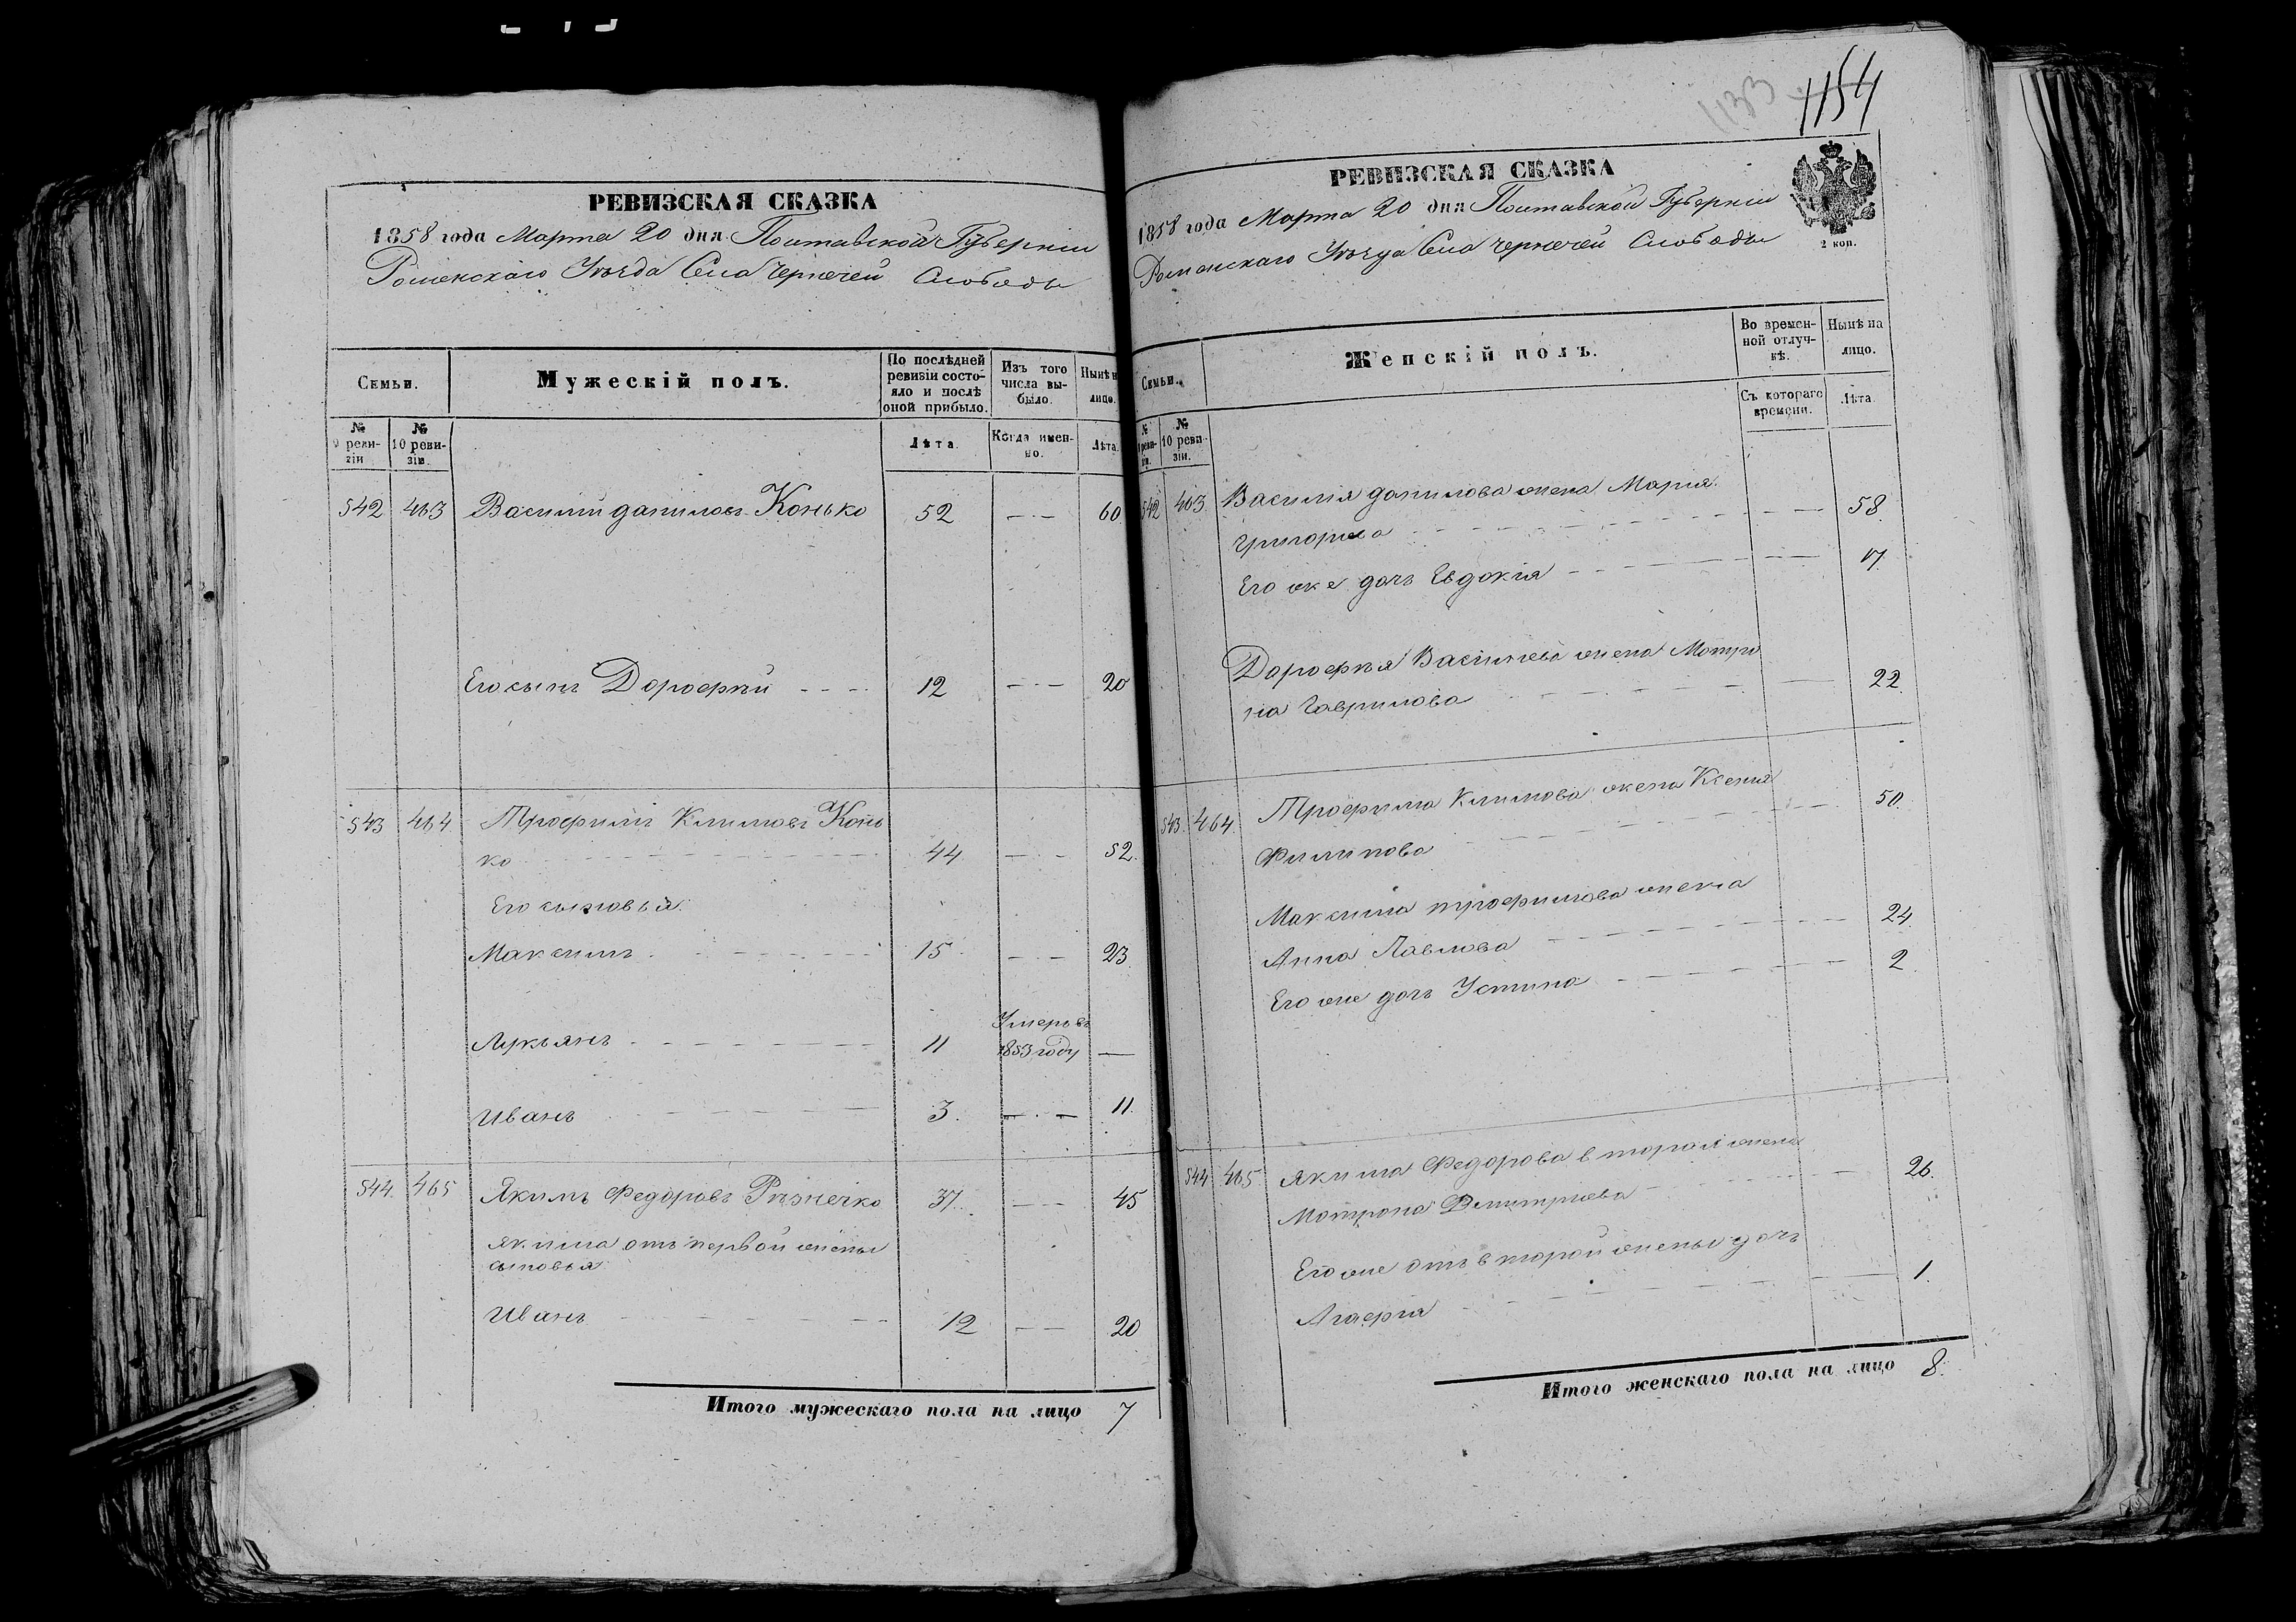 РЕВИЗСКАЯ СКАЗКА
1858 года Марта 20 дня Полтавской Губерніи
Роменскаго Уѣзда Села Чернечей Слободы
Семьи.
Мужескій полъ.
По послѣдней ревизіи состояло и послѣ оной прибыло.
Изъ того числа выбыло.
Нынѣ на лицо.
№ 9 ревизіи
№ 10 ревизіи.
Лѣта
Когда именно.
Лѣта.
542 463 Василій даниловъ Конько 52 — 60
Его сынъ Дорофѣй 12 — 20
543 464 Трофимъ Климовъ Конь
ко 44 — 52.
Его сыновья.
Максимъ 15 — 23
Умеръ въ
Лукьянъ 11 1853 году —
Иванъ 3. — 11.
544. 465 Якимъ Федоровъ Рѣзнечко 37. — 45
Якима отъ первой жены
сыновья
Иванъ 12 — 20
Итого мужескаго пола на лицо 7
1133 1154
РЕВИЗСКАЯ СКАЗКА
1858 года Марта 20 дня Полтавской Губерніи
2 коп.
Роменскаго Уѣзда Села Чернечей Слободы
Семьи.
Женскій полъ.
Во временной отлучкѣ.
Нынѣ на лицо.
№ 9 ревизіи.
№ 10 ревизіи.
Съ котораго времени.
Лѣта.
542 463 Василія данилова жена Марія
Григорьева — 58.
Его же дочь Евдокія — 17.
Дорофѣя Васильева жена Мотро
на Гаврилова — 22.
543. 464. Трофима Климова жена Ксенія
Филипова — 50.
Максима трофимова жена
Анна Павлова — 24
Его же дочь Устина — 2.
544 465 Якима Федорова вторая жена
Мотрона Дмитріева — 26.
Его же отъ второй жены дочь
Агафія — 1.
Итого женскаго пола на лицо 8.